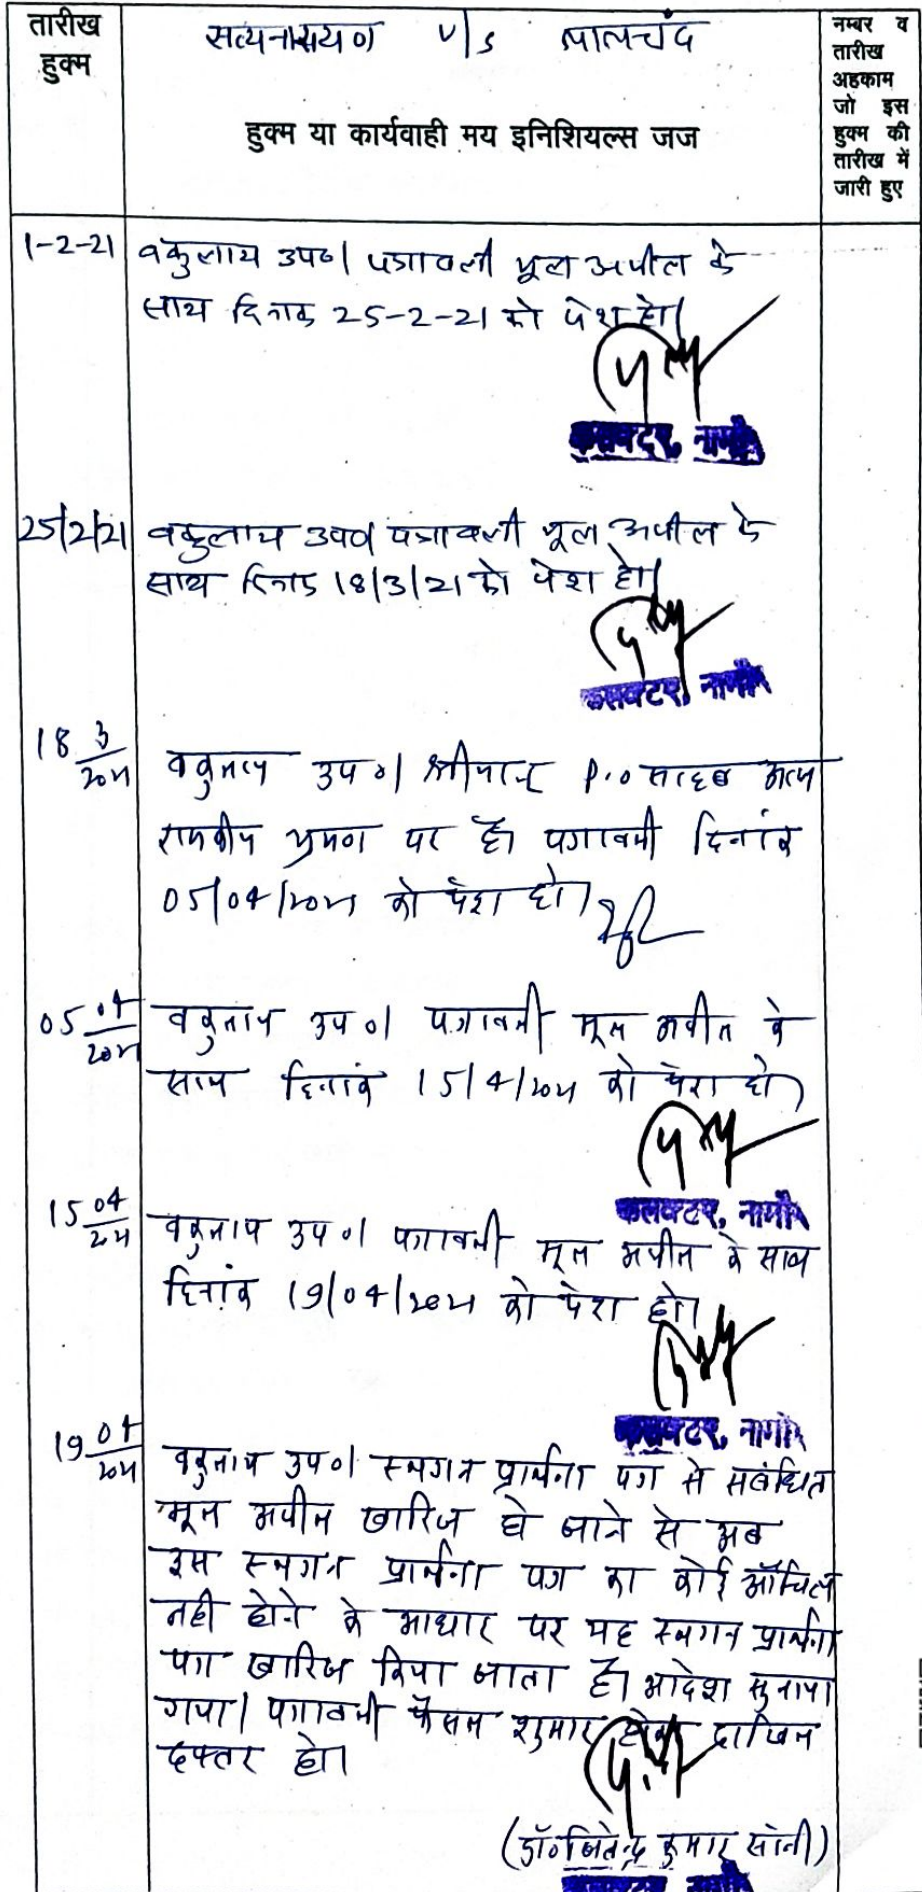 तारीख
हुक्म
सत्यनारायण v/s लालचंद
हुक्म या कार्यवाही मय इनिशियल्स जज
नम्बर व
तारीख
अहकाम
जो इस
हुक्म की
तारीख में
जारी हुए
1-2-21 वकुलाय उप०। पत्रावली मूल अपील के
साथ दिनांक 25-2-21 को पेश हो।
कलक्टर, नागौर
25/2/21 वकुलाय उप०। पत्रावली मूल अपील के
साथ दिनांक 18/3/21 को पेश हो।
कलक्टर, नागौर
18 3/2021 वकुलाय उप०। श्रीमान P.O साहब अन्य
राजकीय भ्रमण पर है। पत्रावली दिनांक
05/04/2021 को पेश हो।
05 04/2021 वकुलाय उप०। पत्रावली मूल अपील के
साथ दिनांक 15/4/2021 को पेश हो।
कलक्टर, नागौर
15 04/21 वकुलाय उप०। पत्रावली मूल अपील के साथ
दिनांक 19/04/2021 को पेश हो।
कलक्टर, नागौर
19 04/2021 वकुलाय उप०। स्थगन प्रार्थना पत्र से संबंधित
मूल अपील खारिज हो जाने से अब
इस स्थगन प्रार्थना पत्र का कोई औचित्य
नही होने के आधार पर यह स्थगन प्रार्थना
पत्र खारिज किया जाता है। आदेश सुनाया
गया। पत्रावली फैसल शुमार होकर दाखिल
दफ्तर हो।
(डॉ० जितेन्द्र कुमार सोनी)
कलक्टर, नागौर